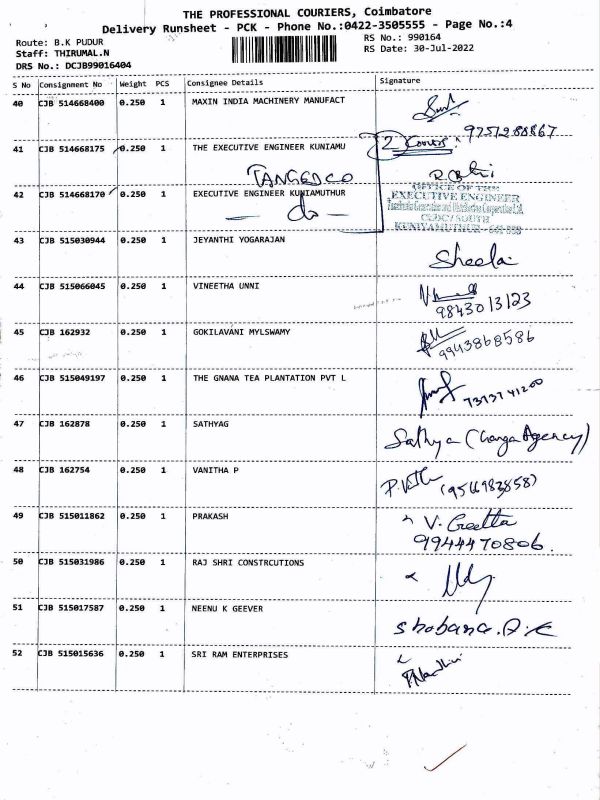 THE PROFESSIONAL COURIERS, Coimbatore
Delivery Runsheet - PCK - Phone No.:0422-3505555 - Page No.:4
Route: B.K PUDUR
RS No.: 990164
Staff: THIRUMAL.N
RS Date: 30-Jul-2022
DRS No.: DCJB99016404
S No Consignment No Weight PCS Consignee Details Signature
40 CJB 514668400 0.250 1 MAXIN INDIA MACHINERY MANUFACT
9751288867
41 CJB 514668175 0.250 1 THE EXECUTIVE ENGINEER KUNIAMU 2 Covers
TANGEDCO
42 CJB 514668170 0.250 1 EXECUTIVE ENGINEER KUNIAMUTHUR
do
OFFICE OF THE
EXECUTIVE ENGINEER
KUNIYAMUTHUR
43 CJB 515030944 0.250 1 JEYANTHI YOGARAJAN Sheela
44 CJB 515066045 0.250 1 VINEETHA UNNI
9843013123
45 CJB 162932 0.250 1 GOKILAVANI MYLSWAMY
9943868586
46 CJB 515049197 0.250 1 THE GNANA TEA PLANTATION PVT L
7373741200
47 CJB 162878 0.250 1 SATHYAG Sathya (Ganga Agency)
48 CJB 162754 0.250 1 VANITHA P
49 CJB 515011862 0.250 1 PRAKASH V. Geetta
9944470806
50 CJB 515031986 0.250 1 RAJ SHRI CONSTRCUTIONS
51 CJB 515017587 0.250 1 NEENU K GEEVER shobana.
52 CJB 515015636 0.250 1 SRI RAM ENTERPRISES